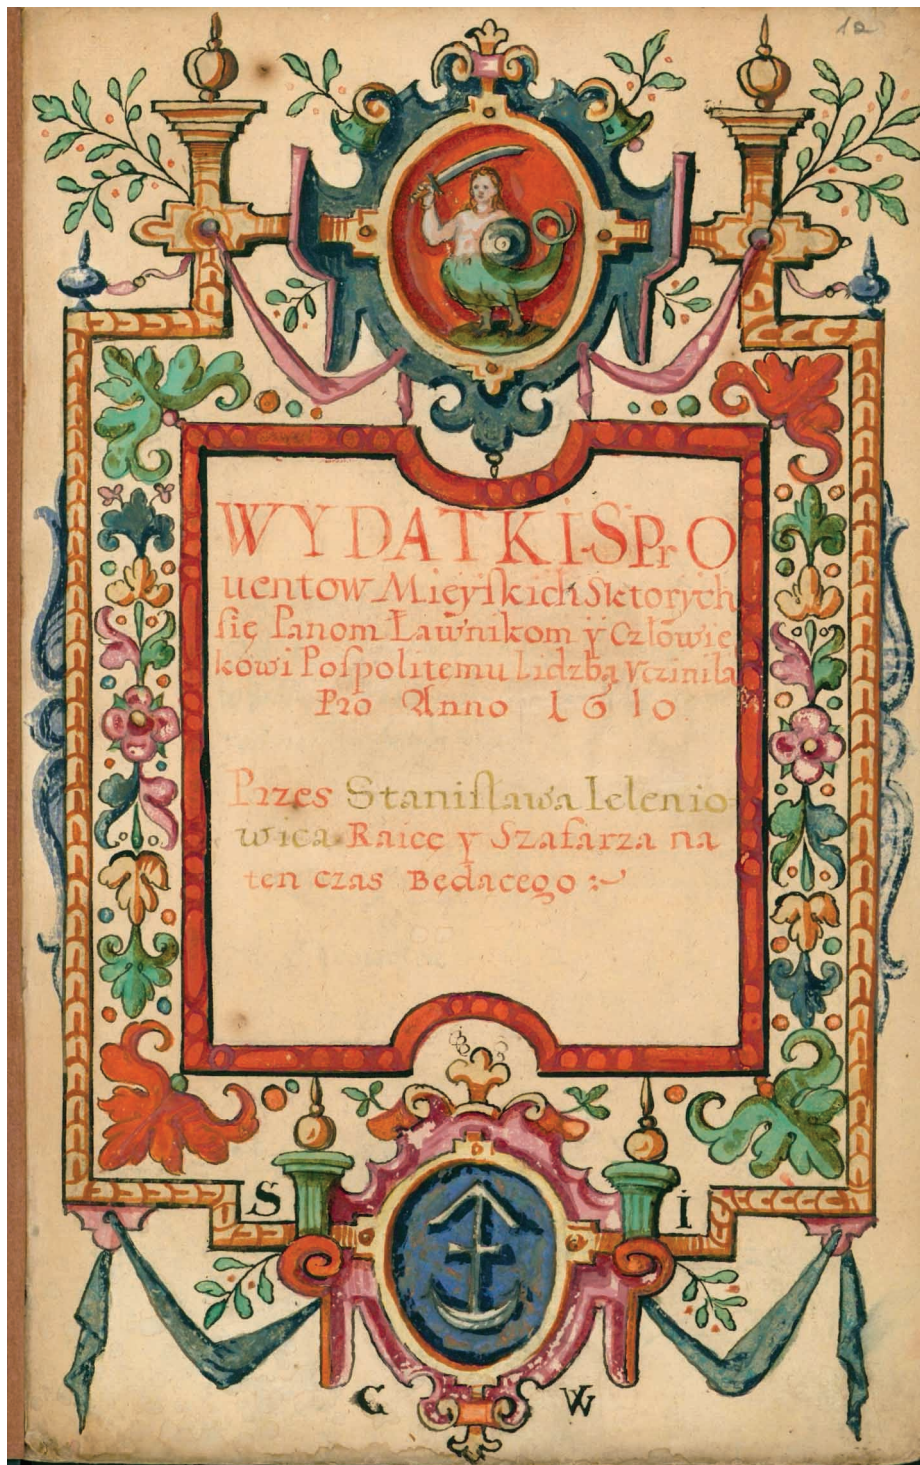 12
WYDATKI·SPrO
uentow Mieyſkich Sktorych
ſię Panom Ławnikom y Człowie
kowi Poſpolitemu Lidzbą Vczinila
Pro Anno 1610
Przes Staniſława Ielenio
wica Raicę y Szafarza na
ten czas Będącego :~
S I
C W